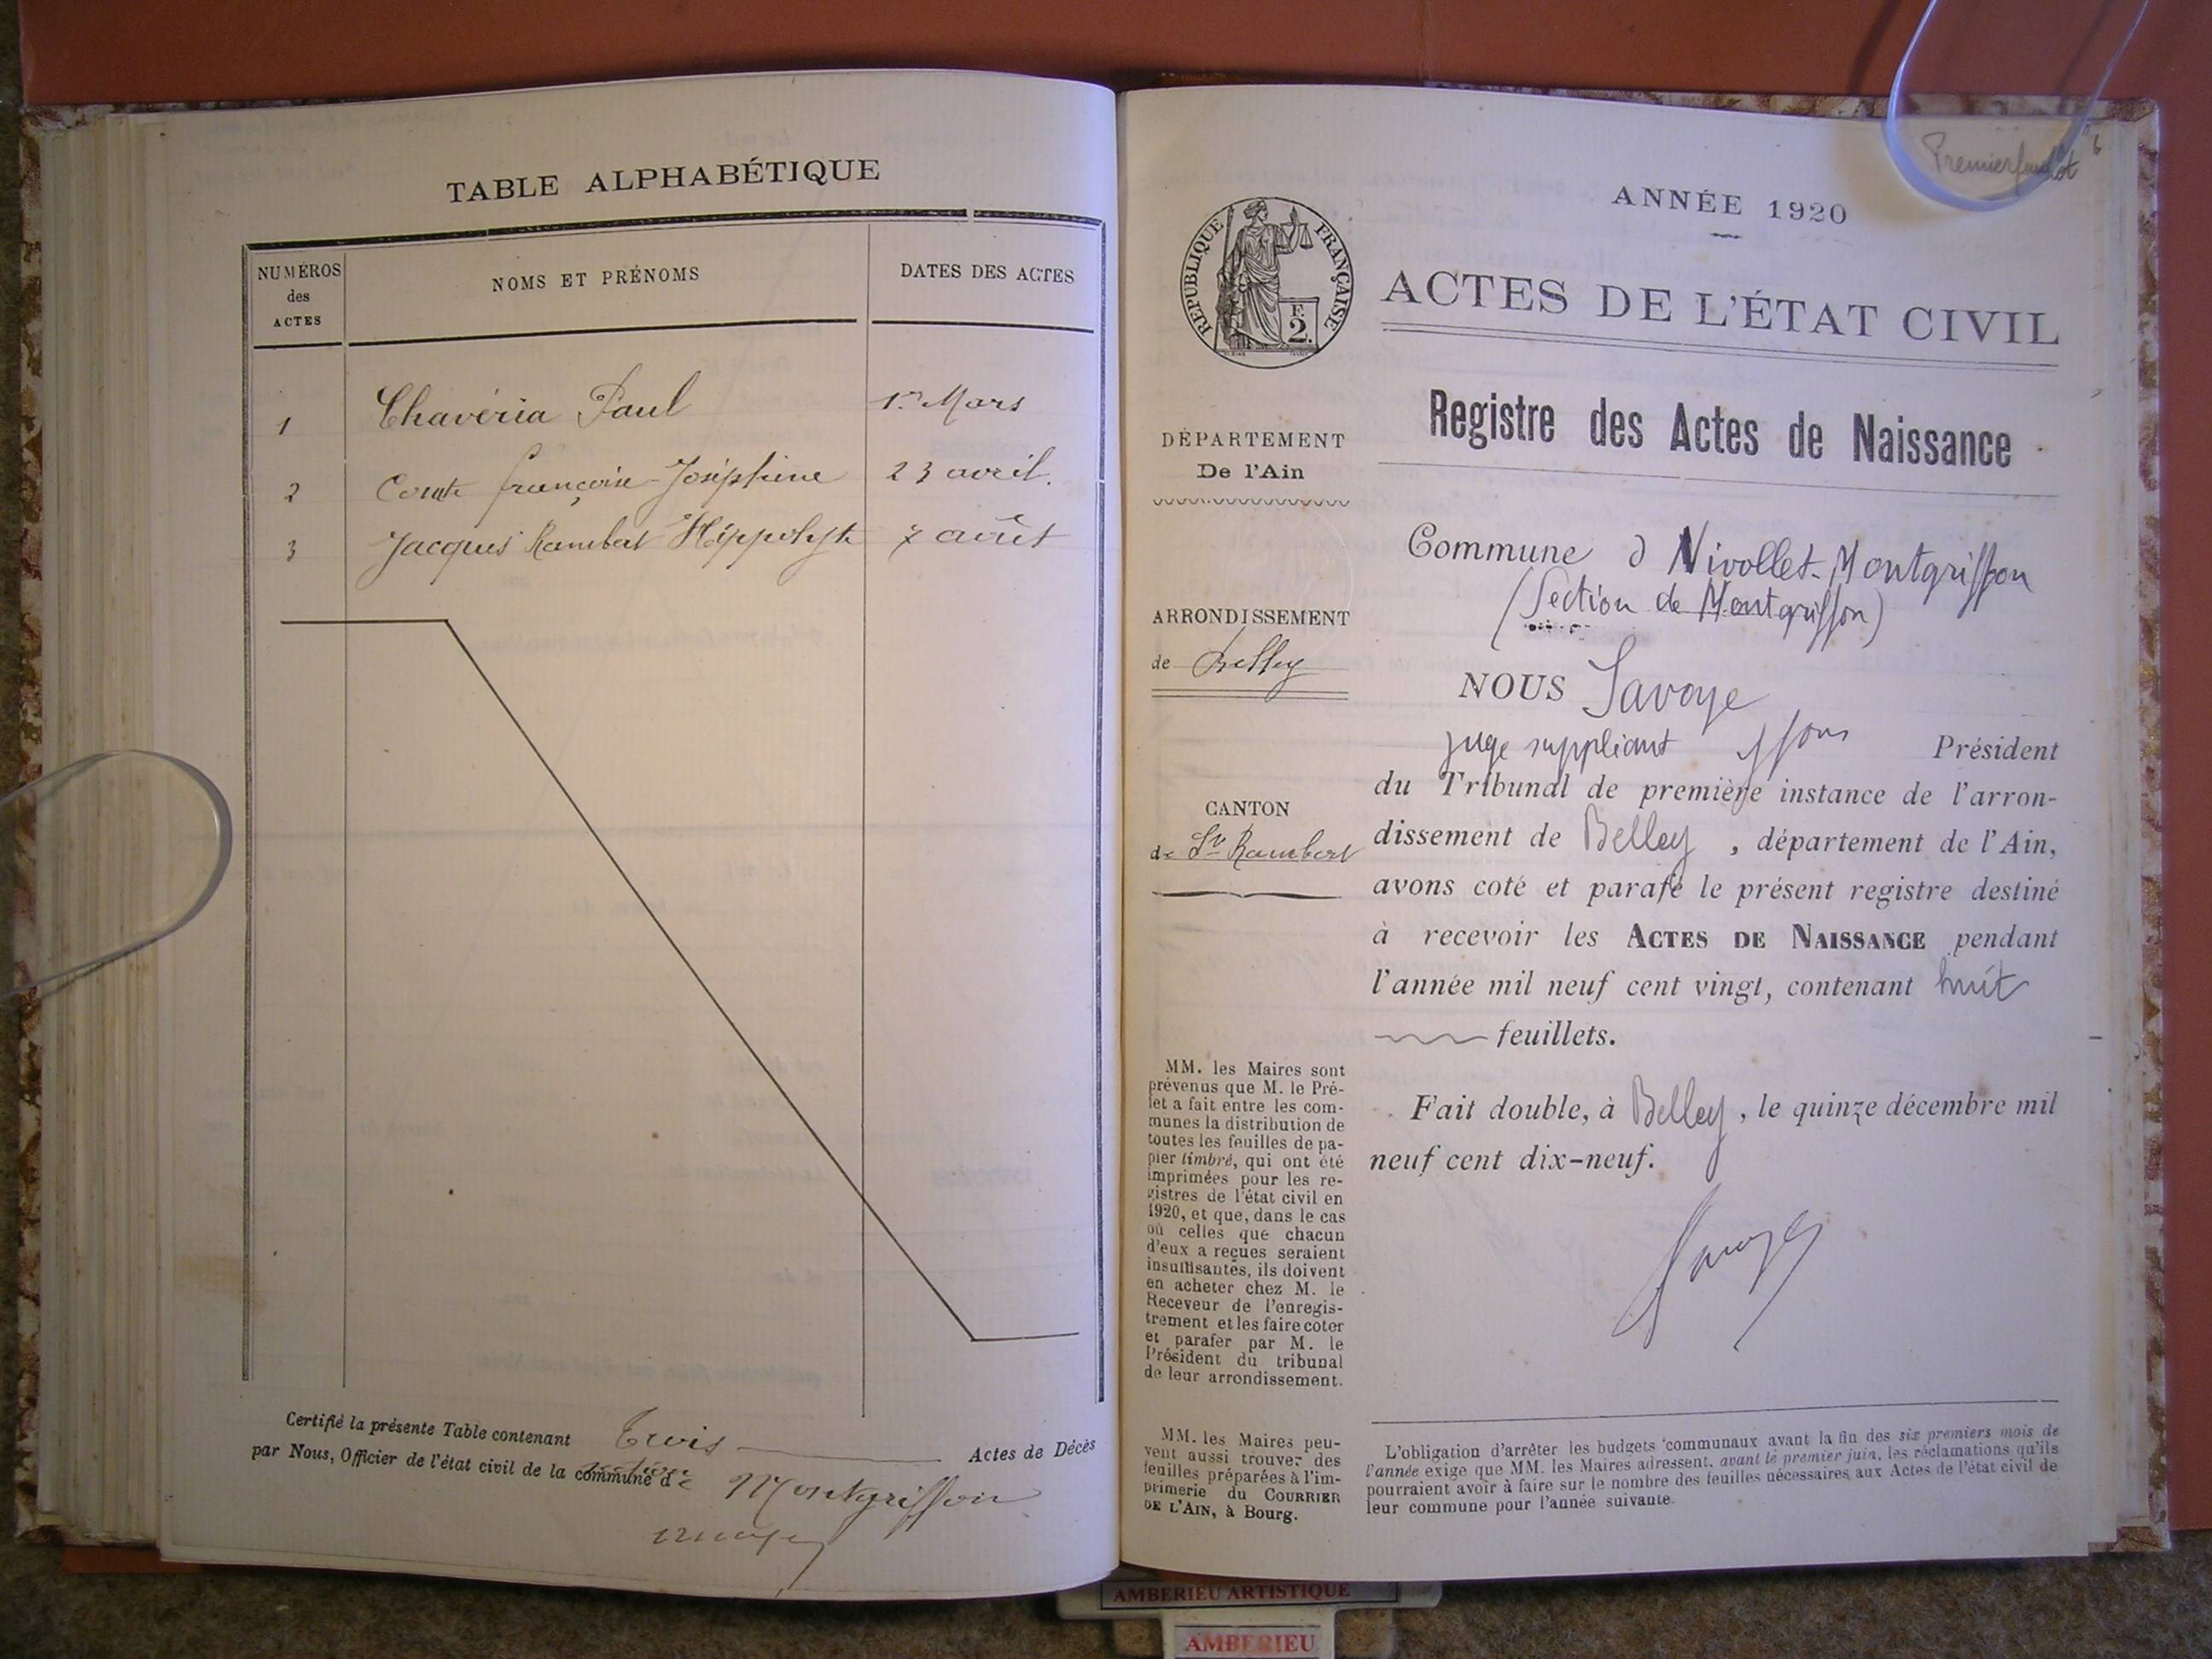 TABLE ALPHABÉTIQUE
NUMÉROS des ACTES
NOMS ET PRÉNOMS
DATES DES ACTES
1 Chavéria Paul 1er Mars
2 Comte françoise-Joséphine 23 avril.
3 Jacques Rambert Hippolyte 7 août
Certifié la présente Table contenant Trois Actes de Décès
par Nous, Officier de l'état civil de la commune de Montgriffon
Premier feuillet
ANNÉE 1920
RÉPUBLIQUE FRANÇAISE
F.
2.
ACTES DE L'ÉTAT CIVIL
Registre des Actes de Naissance
DÉPARTEMENT
De l'Ain
ARRONDISSEMENT
de Belley
CANTON
de St Rambert
MM. les Maires sont
prévenus que M. le Pré-
fet a fait entre les com-
munes la distribution de
toutes les feuilles de pa-
pier timbré, qui ont été
imprimées pour les re-
gistres de l'état civil en
1920, et que, dans le cas
où celles que chacun
d'eux a reçues seraient
insuffisantes, ils doivent
en acheter chez M. le
Receveur de l'enregis-
trement et les faire coter
et parafer par M. le
Président du tribunal
de leur arrondissement.
MM. les Maires peu-
vent aussi trouver des
feuilles préparées à l'im-
primerie du COURRIER
DE L'AIN, à Bourg.
Commune d Nivollet-Montgriffon
(Section de Montgriffon)
NOUS Savoye
juge suppléant Président
du Tribunal de première instance de l'arron-
dissement de Belley, département de l'Ain,
avons coté et parafé le présent registre destiné
à recevoir les ACTES DE NAISSANCE pendant
l'année mil neuf cent vingt, contenant huit
feuillets.
Fait double, à Belley, le quinze décembre mil
neuf cent dix-neuf.
Savoye
L'obligation d'arrêter les budgets communaux avant la fin des six premiers mois de
l'année exige que MM. les Maires adressent, avant le premier juin, les réclamations qu'ils
pourraient avoir à faire sur le nombre des feuilles nécessaires aux Actes de l'état civil de
leur commune pour l'année suivante.
AMBERIEU ARTISTIQUE
AMBERIEU